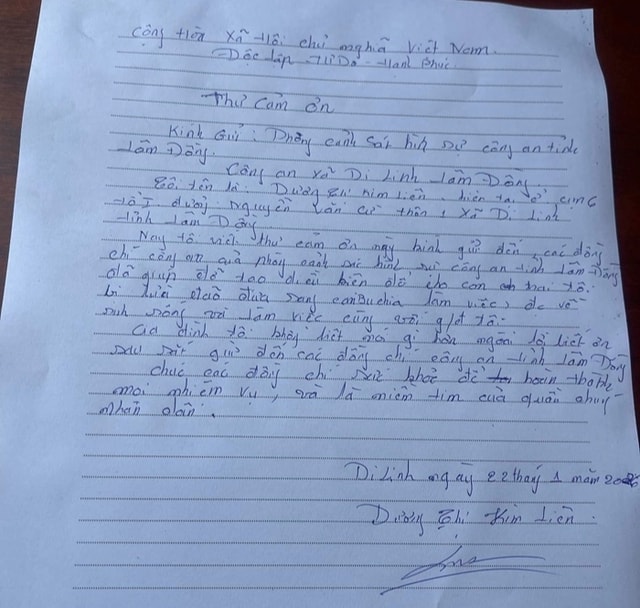 Cộng Hòa Xã Hội chủ nghĩa Việt Nam.
Độc lập - Tự Do - Hạnh Phúc.
Thư Cảm ơn
Kính Gửi: Phòng cảnh sát hình sự công an tỉnh
Lâm Đồng.
Công an xã Di Linh Lâm Đồng
Tôi tên là: Dương Thị Kim Liên. hiện tại ở,
tổ 7 đường Nguyễn Văn Cừ thôn 1 Xã Di Linh
tỉnh Lâm Đồng
Nay tô viết thư cảm ơn này kính gửi đến, các đồng
chí công an phòng cảnh sát hình sự công an tỉnh Lâm Đồng
đã giúp đỡ tạo điều kiện để cho con trai tô.
bị lừa đảo đưa sang campuchia làm việc, đc về
sinh sống và làm việc cùng với g/đ tôi.
Gia đình tô không biết nói gì hơn ngoài lời biết ơn
sâu sắc gửi đến các đồng chí công an tỉnh Lâm Đồng
chúc các đồng chí sức khoẻ để hoàn thành
mọi nhiệm vụ, và là niềm tin của quần chúng
nhân dân.
Di Linh ngày 22 tháng 1 năm 2026
Dương Thị Kim Liên.